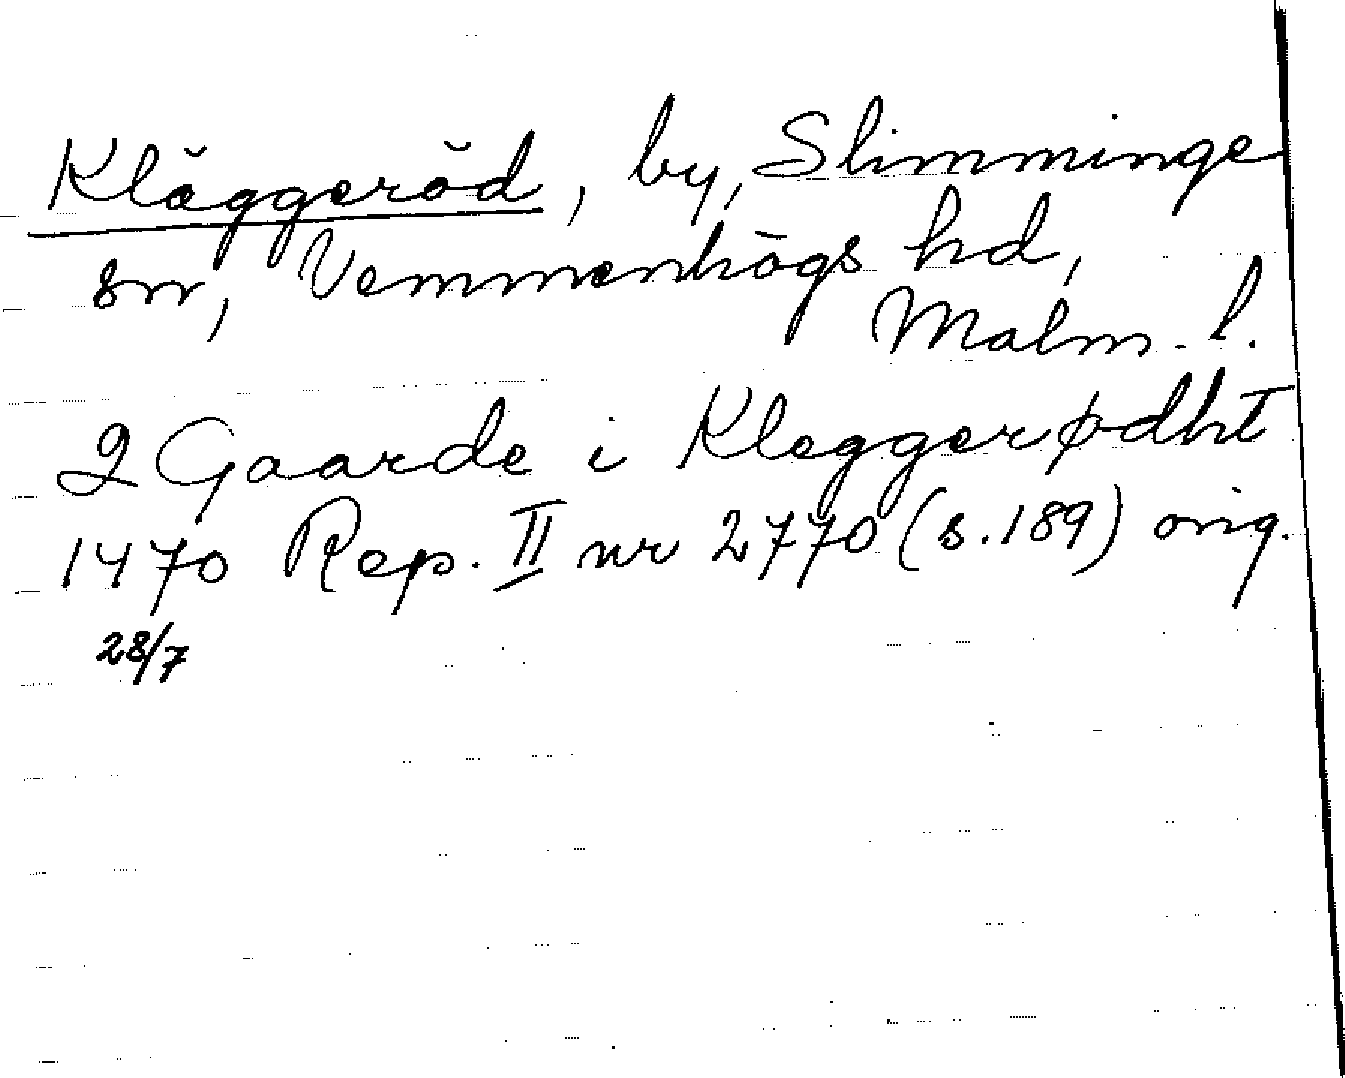 Kläggeröd, by, Slimminge
sn, Vemmenhögs hd,
Malm. l.
2 Gaarde i Kleggerødht
1470 Rep. II nr 2770 (s. 189) orig.
28/7